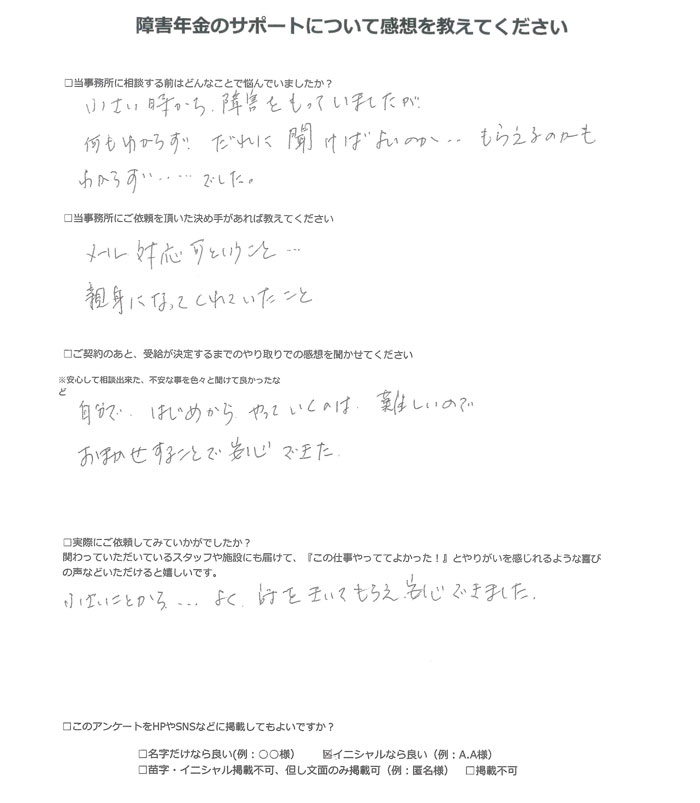 障害年金のサポートについて感想を教えてください
□当事務所に相談する前はどんなことで悩んでいましたか？
小さい時から、障害をもっていましたが、
何もわからず、だれに聞けばよいのか・・もらえるのかも
わからず・・・・・でした。
□当事務所にご依頼を頂いた決め手があれば教えてください
メール対応可ということ…
親身になってくれていたこと
□ご契約のあと、受給が決定するまでのやり取りでの感想を聞かせてください
※安心して相談出来た、不安な事を色々と聞けて良かったな
ど
自分で、はじめから、やっていくのは、難しいので
おまかせすることで安心できた。
□実際にご依頼してみていかがでしたか？
関わっていただいているスタッフや施設にも届けて、『この仕事やっててよかった！』とやりがいを感じれるような喜び
の声などいただけると嬉しいです。
小さいことから、…よく、話をきいてもらえ、安心できました。
□このアンケートをHPやSNSなどに掲載してもよいですか？
□名字だけなら良い(例：○○様） ☒イニシャルなら良い（例：A.A様）
□苗字・イニシャル掲載不可、但し文面のみ掲載可（例：匿名様） □掲載不可